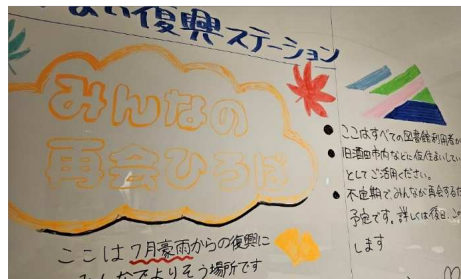 復興ステーション
みんなの
再会ひろば
ここは7月豪雨からの復興に
みんなでよりそう場所です
ここはすべての図書館利用者が
旧酒田市内などに仮住まいしてい
としてご活用ください。
不定期で、みんなが再会するた
予定です。詳しくは後日、この
します